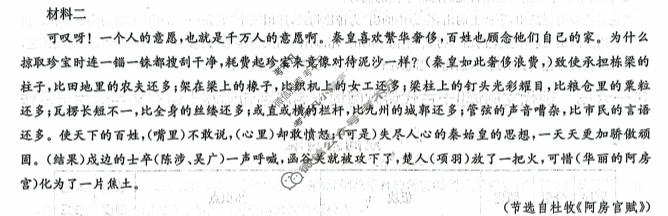 材料二
可叹呀！一个人的意愿，也就是千万人的意愿啊。秦皇喜欢繁华奢侈，百姓也顾念他们自己的家。为什么
掠取珍宝时连一锱一铢都搜刮干净，耗费起珍宝来竟像对待泥沙一样？(秦皇如此奢侈浪费，)致使承担栋梁的
柱子，比田地里的农夫还多；架在梁上的椽子，比织机上的女工还多；梁柱上的钉头光彩耀目，比粮仓里的粟粒
还多；瓦楞长短不一，比全身的丝缕还多；或直或横的栏杆，比九州的城郭还多；管弦的声音嘈杂，比市民的言语
还多。使天下的百姓，(嘴里)不敢说，(心里)却敢愤怒；(可是)失尽人心的秦始皇的思想，一天天更加骄傲顽
固。(结果)戍边的士卒(陈涉、吴广)一声呼喊，函谷关就被攻下了，楚人(项羽)放了一把火，可惜(华丽的阿房
宫)化为了一片焦土。
(节选自杜牧《阿房宫赋》)